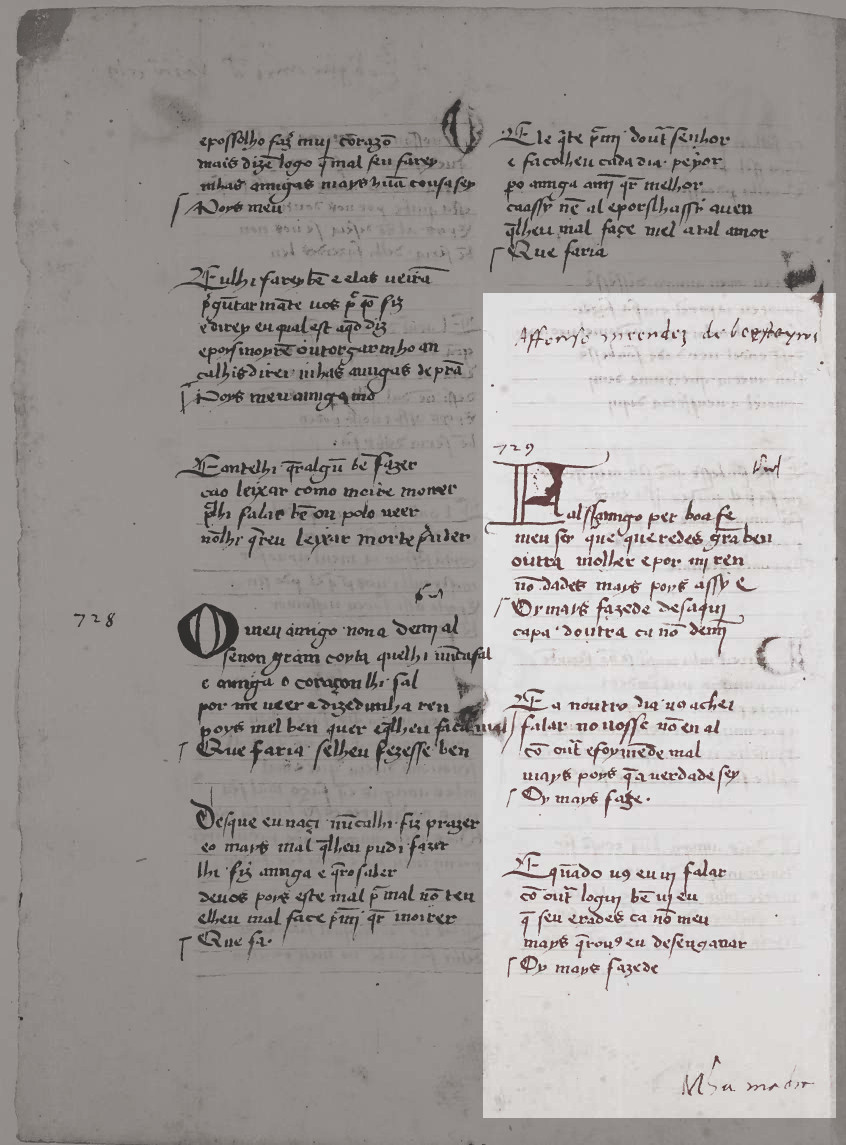 eposselho faz mui corazō
mais dizē logo q̄ mal seu farey
mhas amigas mays hūa cousa sey
Poys meu
E ulhi farey bē e elas ueirā
p̄gūtar māte uos
e direy eu qual est
epois moyrē outorgar mho an
calhis direi mhas amigas de prā
Poys meu amigo
E antelhi q̄r algū bē fazer
cao leixar como moire morrer
p̄lhi falar bē ou polo ueer
nōlhi q̄reu leyxar morte p̄nder
728
O meu amigo nona demī al
senon gram coyta quelhi nūca fal
e amiga o coraçon lhi sal
por me ueer e dized mha ren
poys mel ben quer e q̄lheu faça mal
Que faria selheu fezesse ben
Desque eu naçi nūcalhi fiz prazer
eo mays mal q̄lheu pudi fazer
lhi fiz amiga e q̄ro saber
deuos poys este mal p̄ mal nō ten
elheu mal face p̄mī q̄r moirer
Que fa.
E le q̄ite p̄mī dout̄ senhor
e facolheu cada dia peyor
po amiga amī q̄r melhor
caassy nē al epor lhassy auen
q̄lheu mal façe mel a tal amor
Que faria
Affonso meendez de beesteyros
729
F alssamigo per boa fe
meu sey que queredes grā ben
outra molher e por mi ren
nō dades mays poys assy e
Oy mays fazede desaqui
capa doutra ca nō demī
E a noutro dia uꝯ achei
falar no uosse nō en al
cō out̄ e foy mēde mal
mays poys q̄ a verdade sey
Oy mays faze.
E quādo uꝯ eu ui falar
cō out̄ logui bē ui eu
q̄ seu erades ca nō meu
mays q̄rouꝯ eu desenganar
Oy mays fazede
Mha madre